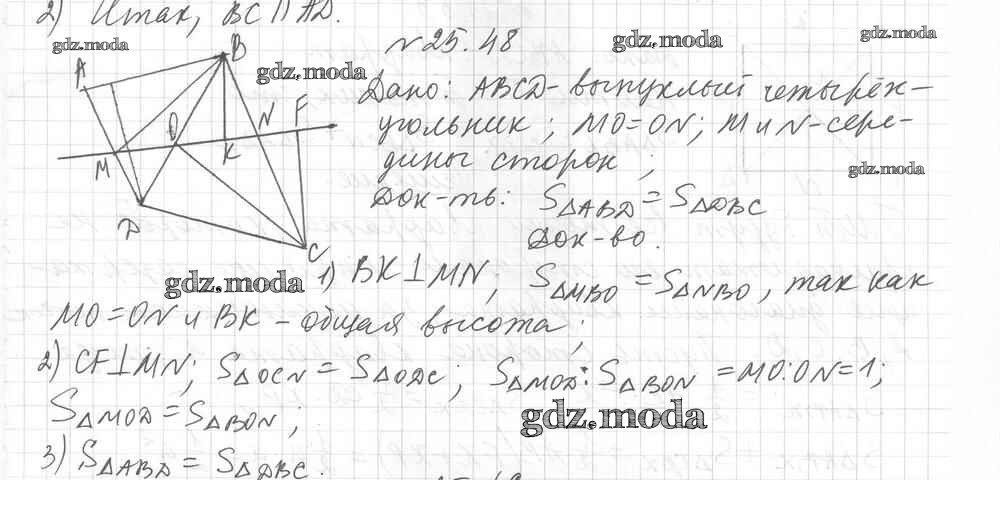 2) Итак, BC || AD.
gdz.moda
gdz.moda
gdz.moda
gdz.moda
№ 25.48
A
B
Дано: ABCD - выпуклый четырёх-
угольник; MO=ON; M и N - сере-
дины сторон;
O
N
F
M
K
gdz.moda
Док-ть: S△ABD = S△DBC
D
Док-во.
C
gdz.moda
1) BK⊥MN; S△MBO = S△NBO, так как
MO=ON и BK - общая высота;
2) CF⊥MN; S△OCN = S△ODC; S△MOD : S△BON = MO:ON=1;
S△MOD = S△BON;
gdz.moda
3) S△ABD = S△DBC.